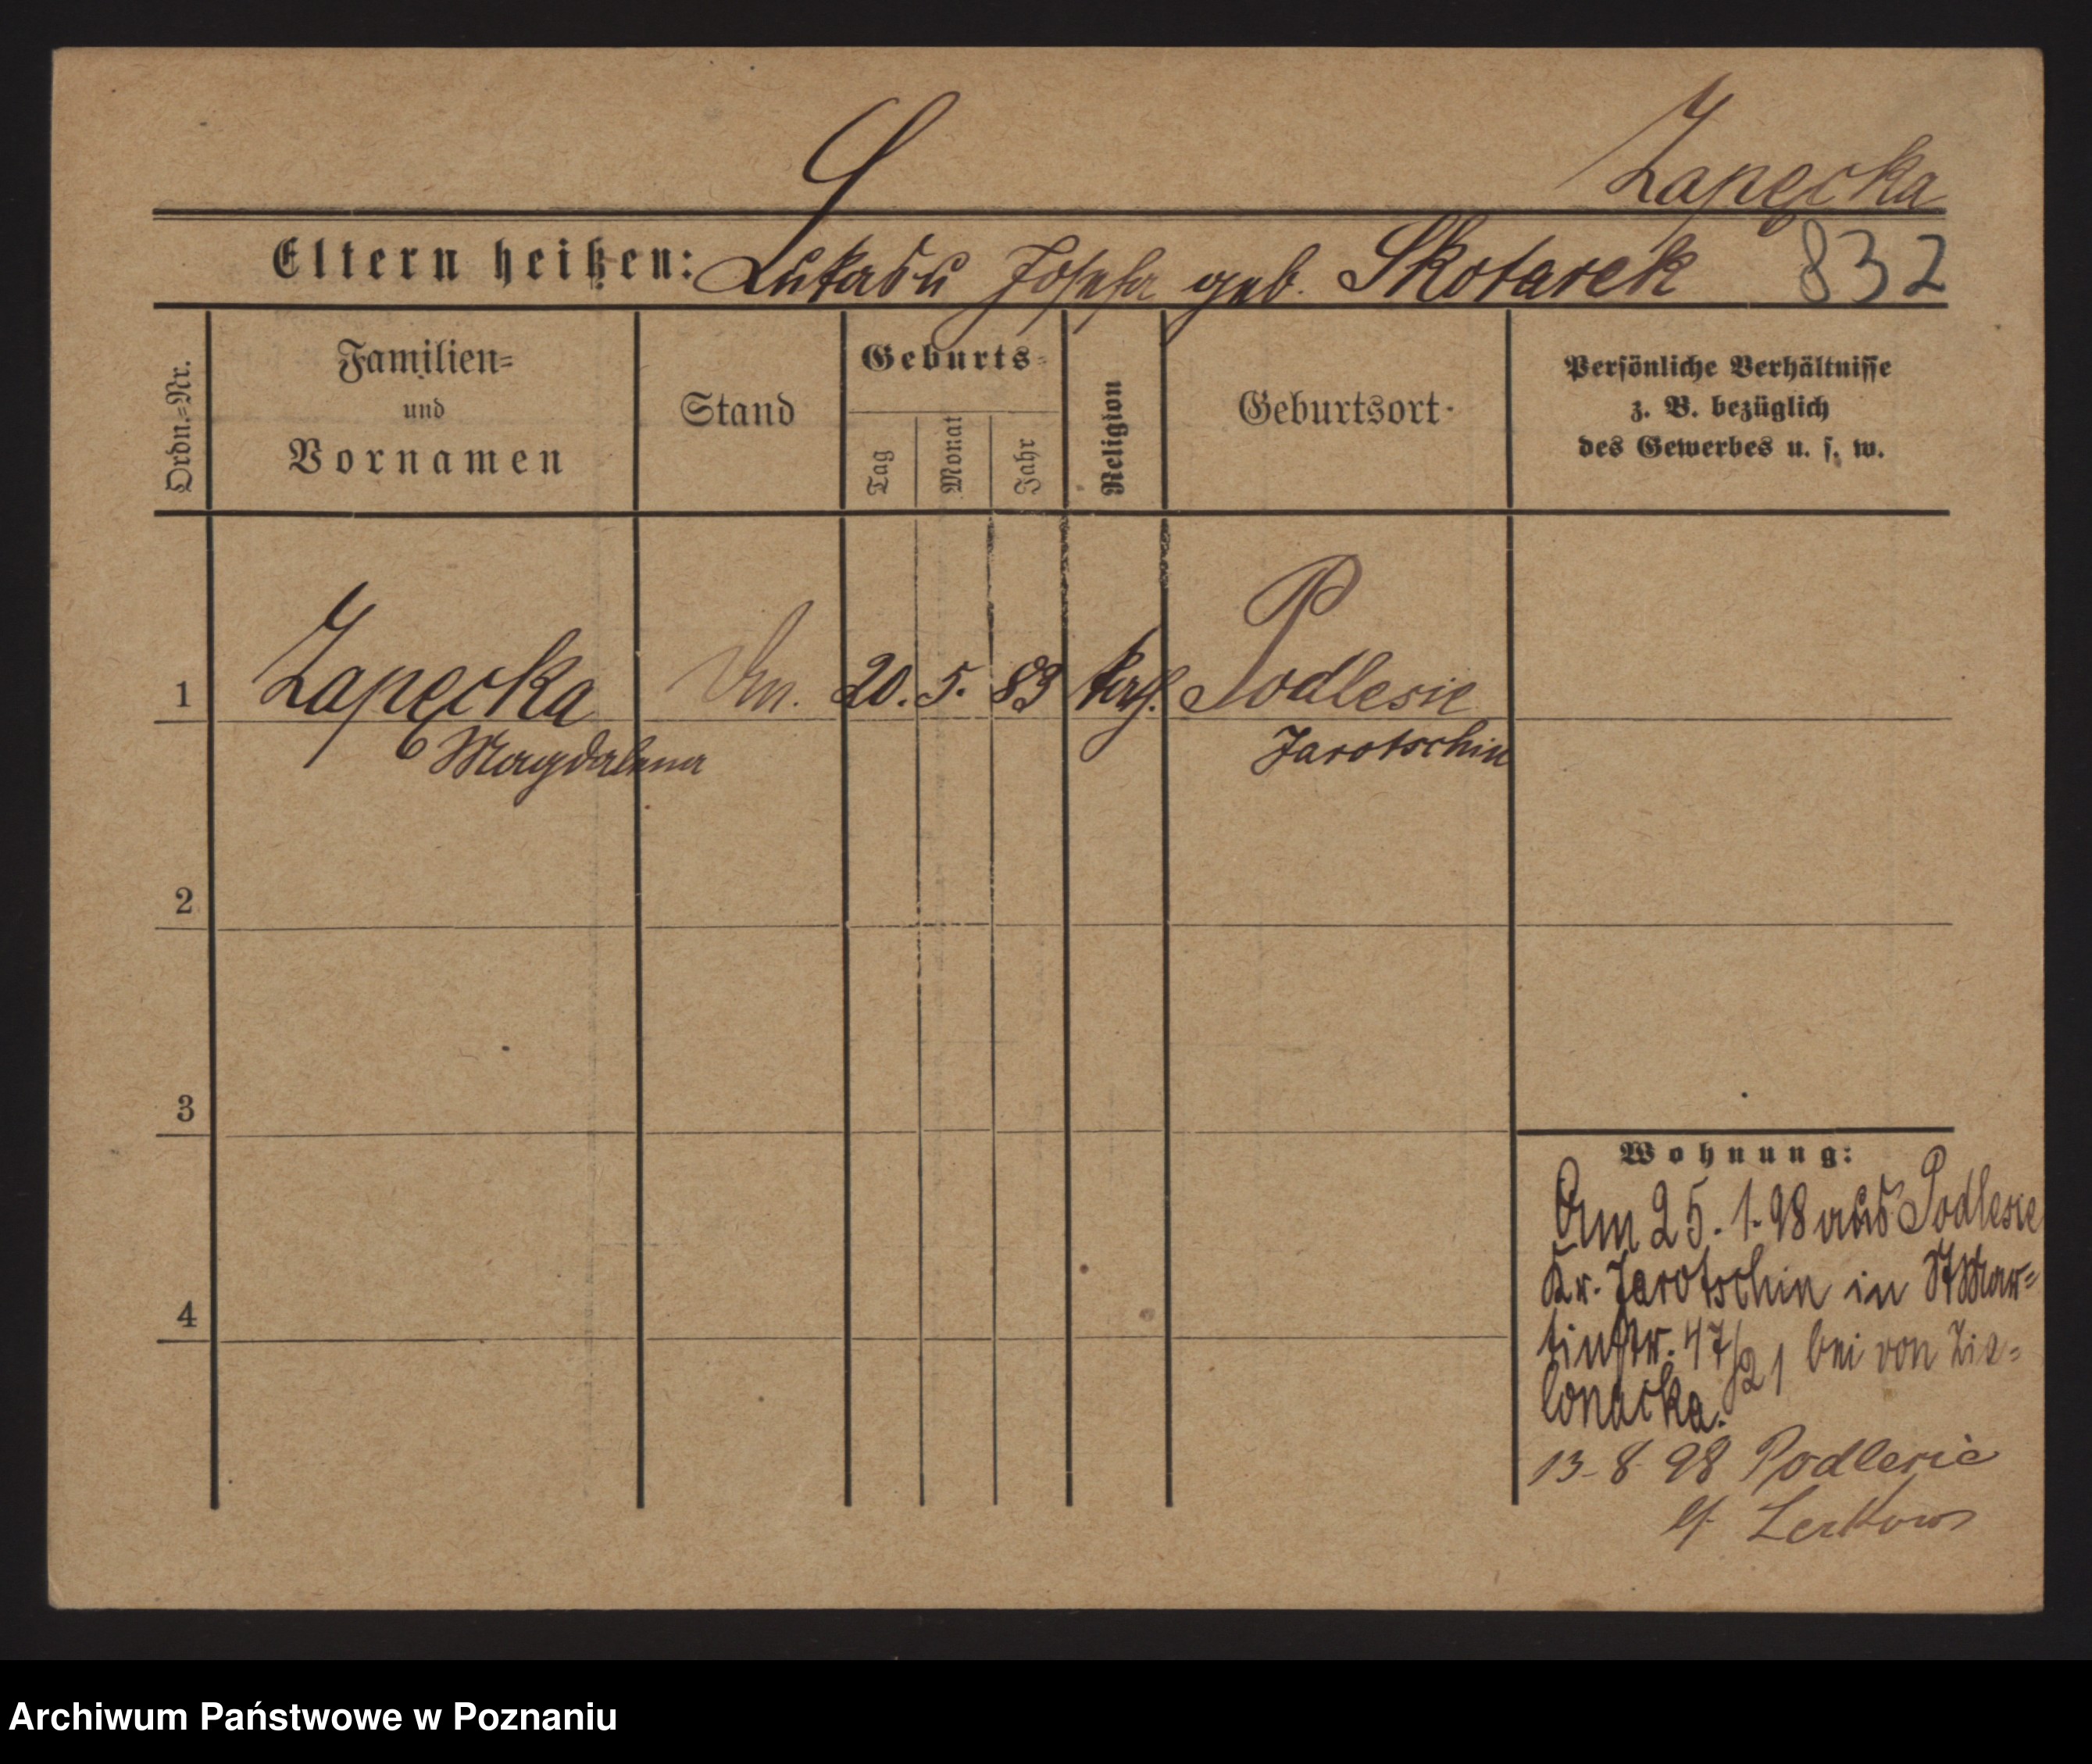 Zapęcka
Eltern heißen: Lukas u Josefa geb. Skotarek 832
Ordn.=Nr.
Familien=
und
Vornamen
Stand
Geburts=
Tag
Monat
Jahr
Religion
Geburtsort
Persönliche Verhältnisse
z. B. bezüglich
des Gewerbes u. s. w.
1 Zapęcka 20. 5. 83 kath. Podlesie
Magdalena Jarotschin
2
3
4
Wohnung:
Am 25. 1. 98 aus Podlesie
Kr. Jarotschin in St Mar=
tinstr. 47/21 bei von
13-8-98 Podlesie
Zerkow
Archiwum Państwowe w Poznaniu